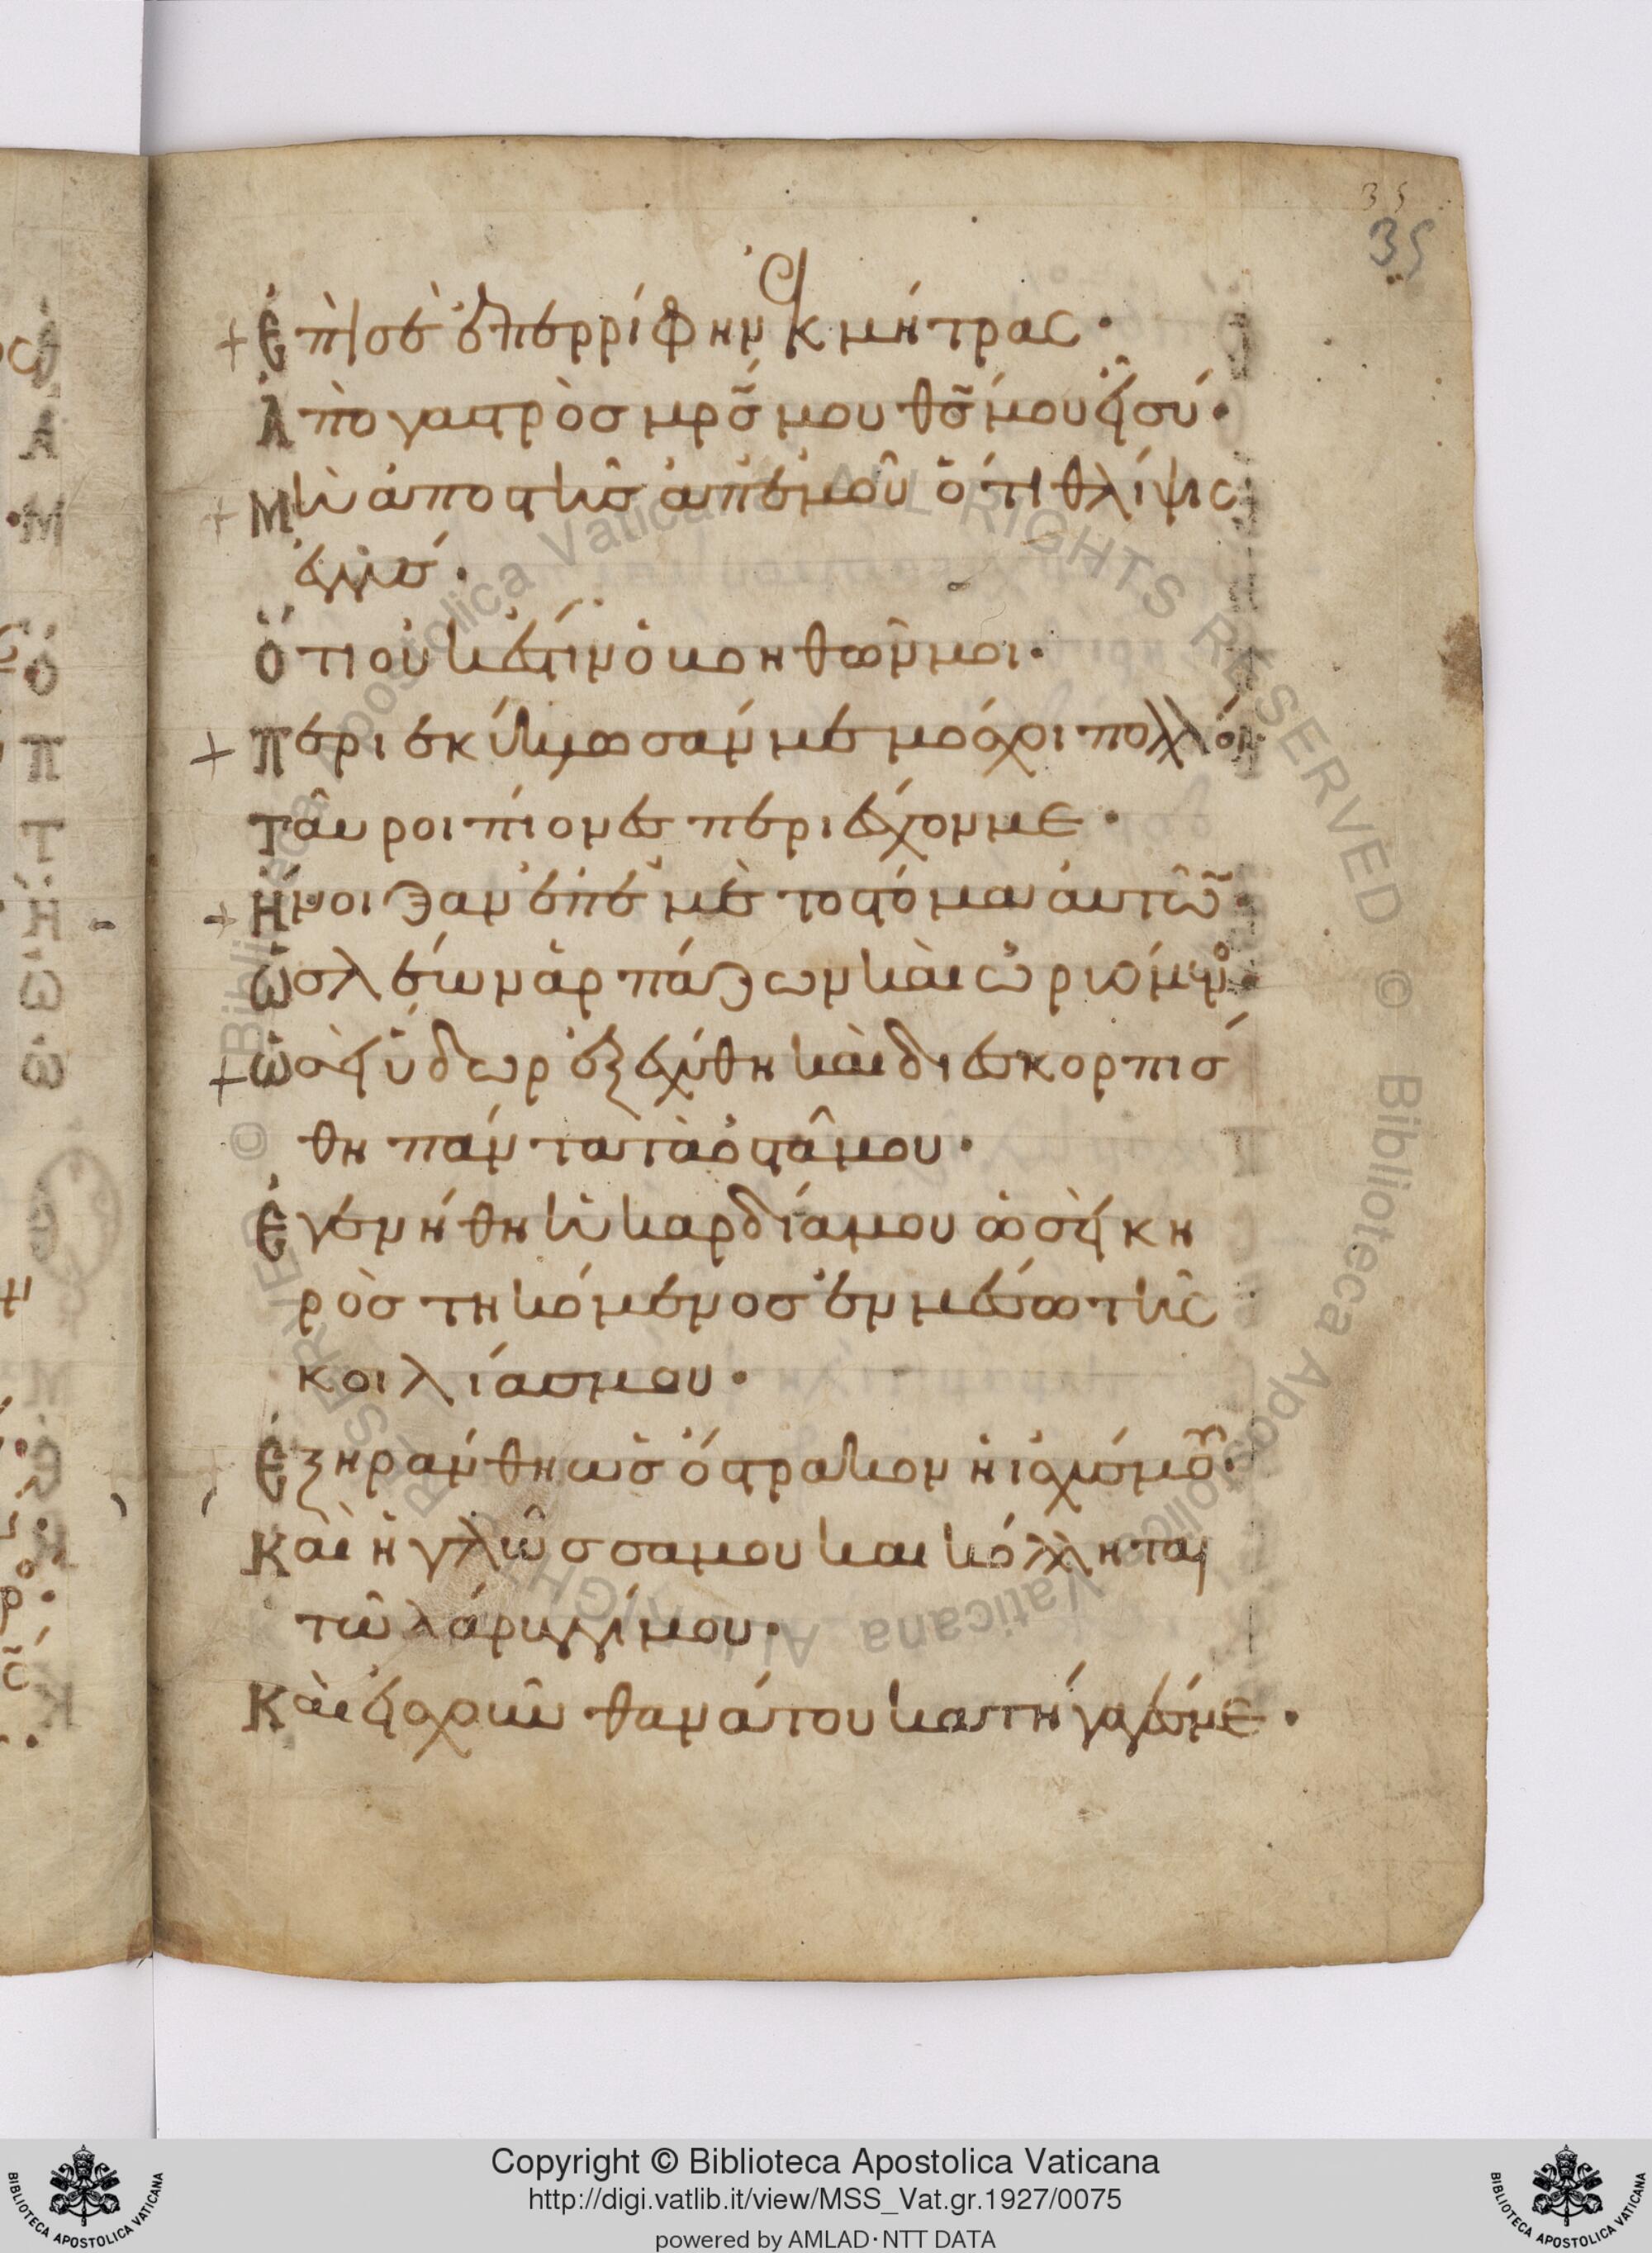 35
35
Ἐπὶ σὲ ἐπερρίφην ἐκ μήτρας·
Ἀπὸ γαστρὸσ μρ̅σ̅ μου θσ̅ μου εἶ σύ·
Μὴ ἀποστῆσ ἀπ' ἐμοῦ ὅτι θλίψις
ἐγγύσ·
Ὅτι οὐκ ἔστιν ὁ βοηθῶν μοι·
Περιεκύκλωσαν με μόσχοι πολλοί·
Ταῦροι πίονεσ περιέσχον με·
Ἤνοιξαν ἐπ' ἐμὲ το στόμα ἀυτῶ̅·
Ὡσ λέων ἁρπάζων καὶ ὠρυόμενος·
Ὡσεὶ ὕδωρ ἐξεχύθη καὶ διεσκορπίσ
θη πάντα τὰ ὀστᾶ μου·
Ἐγενήθη ἡ καρδία μου ὡσεὶ κη
ρὸσ τηκόμενοσ ἐν μέσω τῆς
κοιλίασ μου·
Ἐξηράνθη ὡσ ὄστρακον ἡ ἰσχύσ μου·
Καὶ ἡ γλῶσσα μου κεκόλληται
τῶ λάρυγγί μου·
Καὶ εἰσ χοῦν θανάτου κατήγαγέσ με·
Copyright © Biblioteca Apostolica Vaticana
http://digi.vatlib.it/view/MSS_Vat.gr.1927/0075
powered by AMLAD·NTT DATA